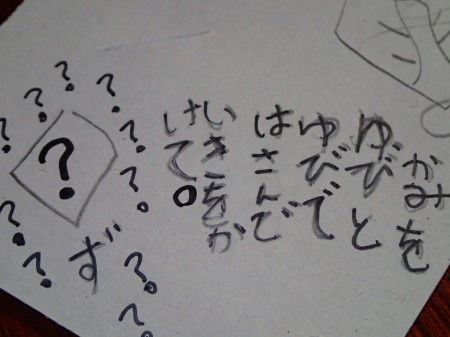 かみを
ゆびと
ゆびで
はさんで
いきをか
けて。
?
?
?
?
?
?
?
?
?
?
?
?
ず